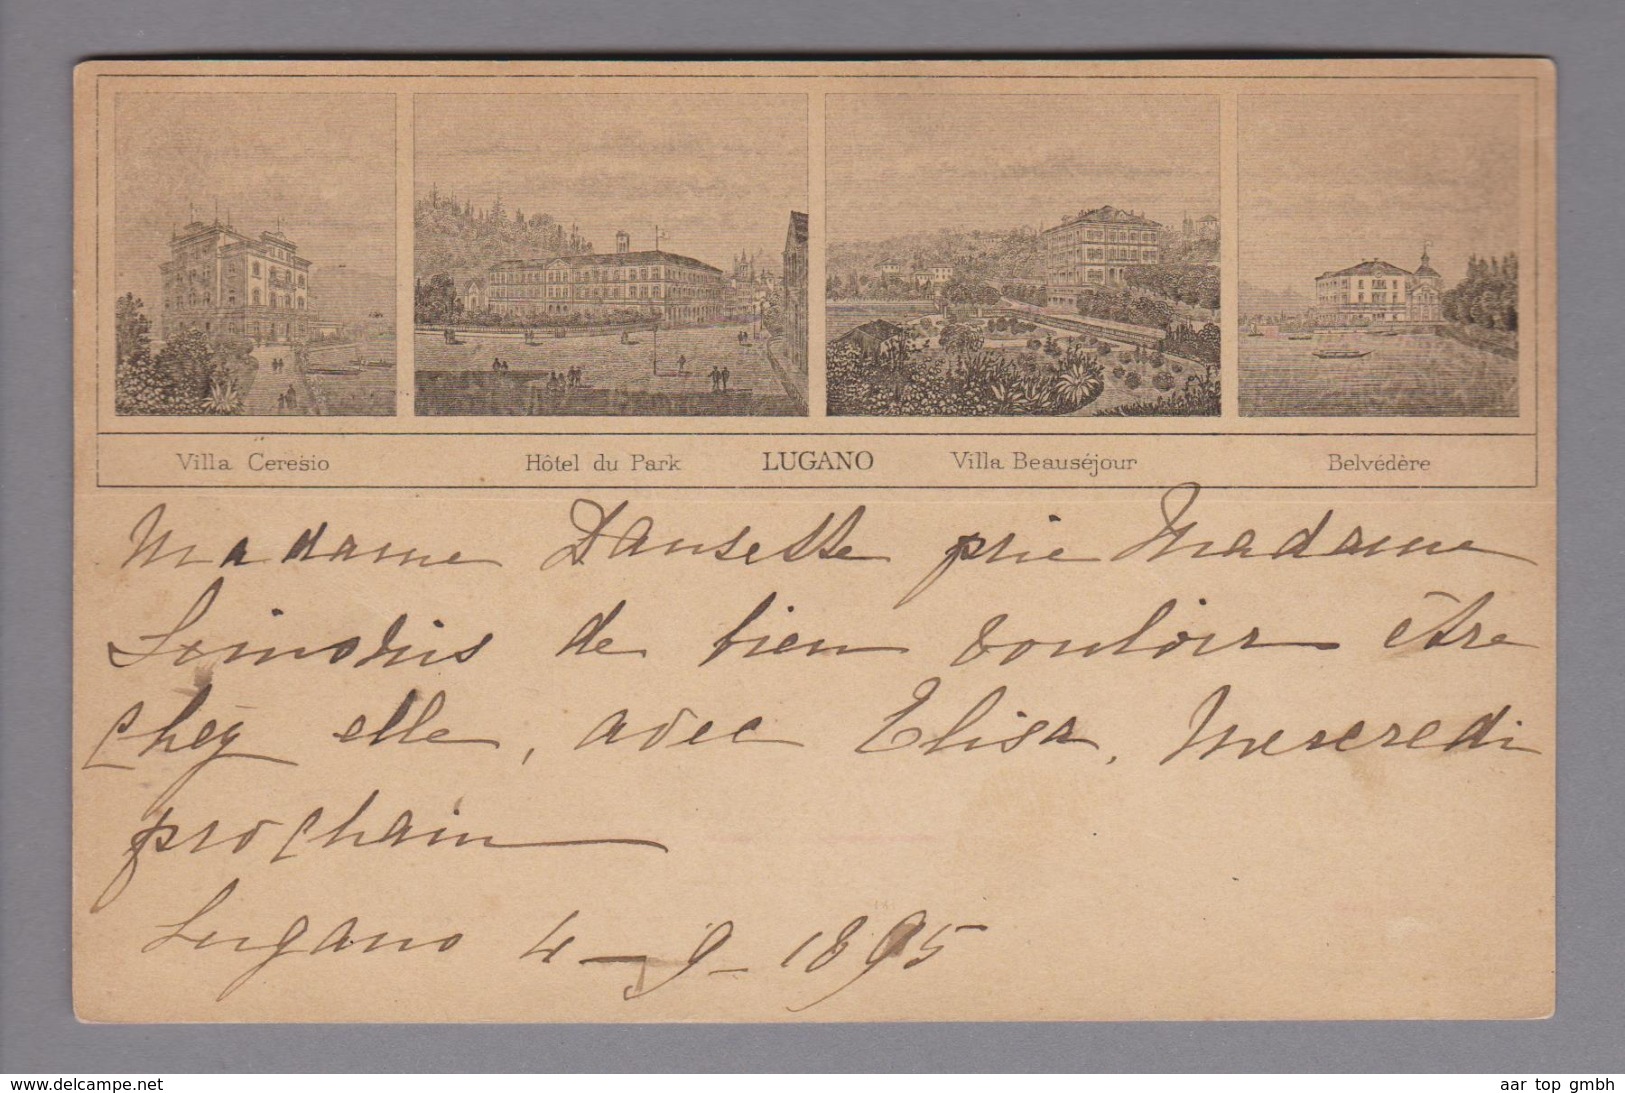 Villa Ceresio Hôtel du Park LUGANO Villa Beauséjour Belvédère
Madame Dansette prie Madame
de bien vouloir être
chez elle, avec Elisa, Mercredi
prochain
Lugano 4-9-1895
www.delcampe.net
aar top gmbh